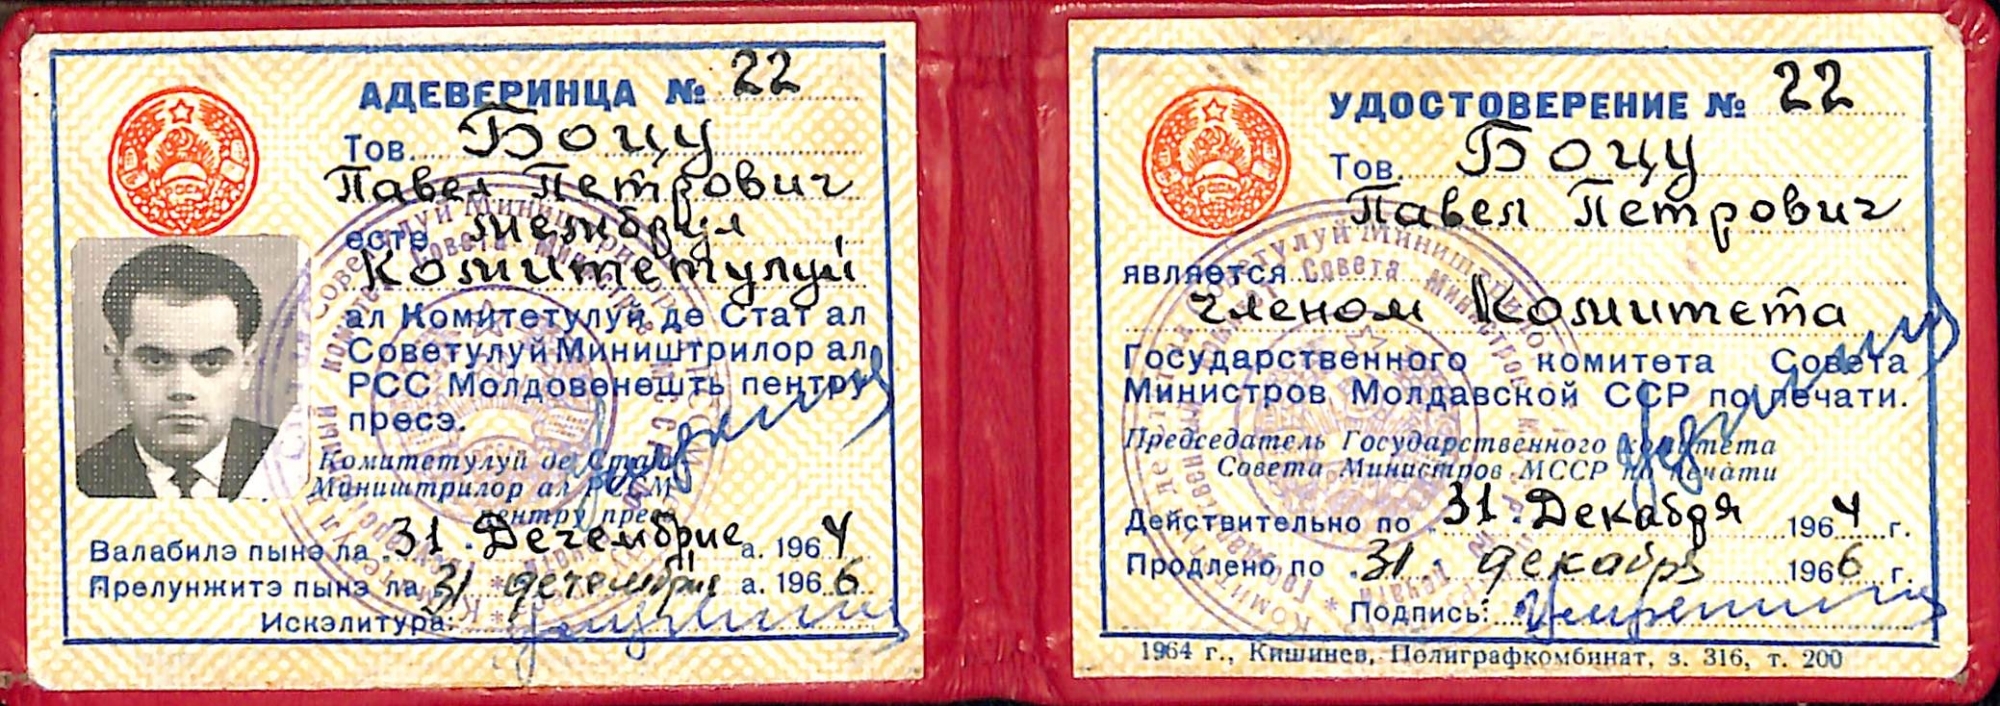 АДЕВЕРИНЦА № 22
Тов. Боцу
Павел Петрович
есте мембрул
Комитетулуй
ал Комитетулуй де Стат ал
Советулуй Миништрилор ал
РСС Молдовенешть пентру
пресэ.
Комитетулуй де Стат
Миништрилор ал РССМ
пентру пресэ
Валабилэ пынэ ла 31 Дечембрие а. 1964
Прелунжитэ пынэ ла 31 дечембрие а. 1966
Искэлитура:
УДОСТОВЕРЕНИЕ № 22
Тов. Боцу
Павел Петрович
является
членом Комитета
Государственного комитета Совета
Министров Молдавской ССР по печати.
Председатель Государственного комитета
Совета Министров МССР по печати
Действительно по 31 Декабря 1964 г.
Продлено по 31 декабря 1966 г.
Подпись:
1964 г., Кишинев, Полиграфкомбинат, з. 316, т. 200